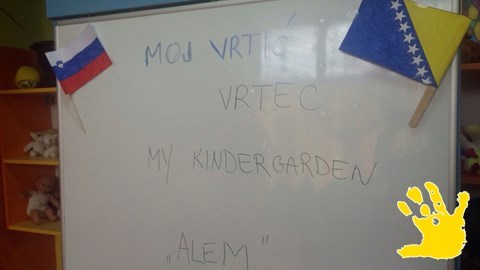 MOJ VRTIĆ
VRTEC
MY KINDERGARDEN
„ALEM"